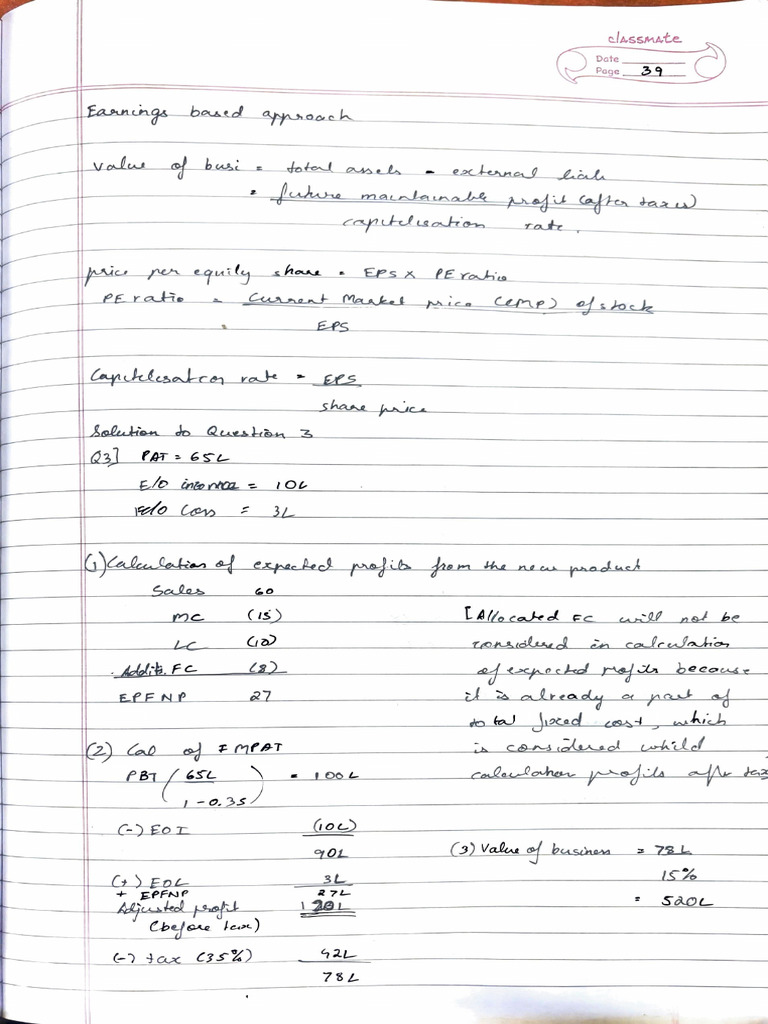 classmate
Date
Page 39
Earnings based approach
Value of busi = total assets - external liab
= future maintainable profit (after taxes)
capitalisation rate.
price per equity share = EPS x PE ratio
PE ratio = Current Market price (CMP) of stock
EPS
Capitalisation rate = EPS
share price
Solution to Question 3
Q3] PAT = 65L
E/O income = 10L
E/O Loss = 3L
(1) Calculation of expected profits from the new product
Sales 60
MC (15)
LC (10)
Addit. FC (8)
EPFNP 27
[Allocated FC will not be
considered in calculation
of expected profits because
it is already a part of
total fixed cost, which
is considered whild
calculation profits after tax
(2) Cal of FMPAT
PBT (65L / 1-0.35) = 100L
(-) EOI (10L)
90L
(+) EOL 3L
+ EPFNP 27L
Adjusted profit 120L
(before tax)
(-) tax (35%) 42L
78L
(3) Value of business = 78L
15%
= 520L